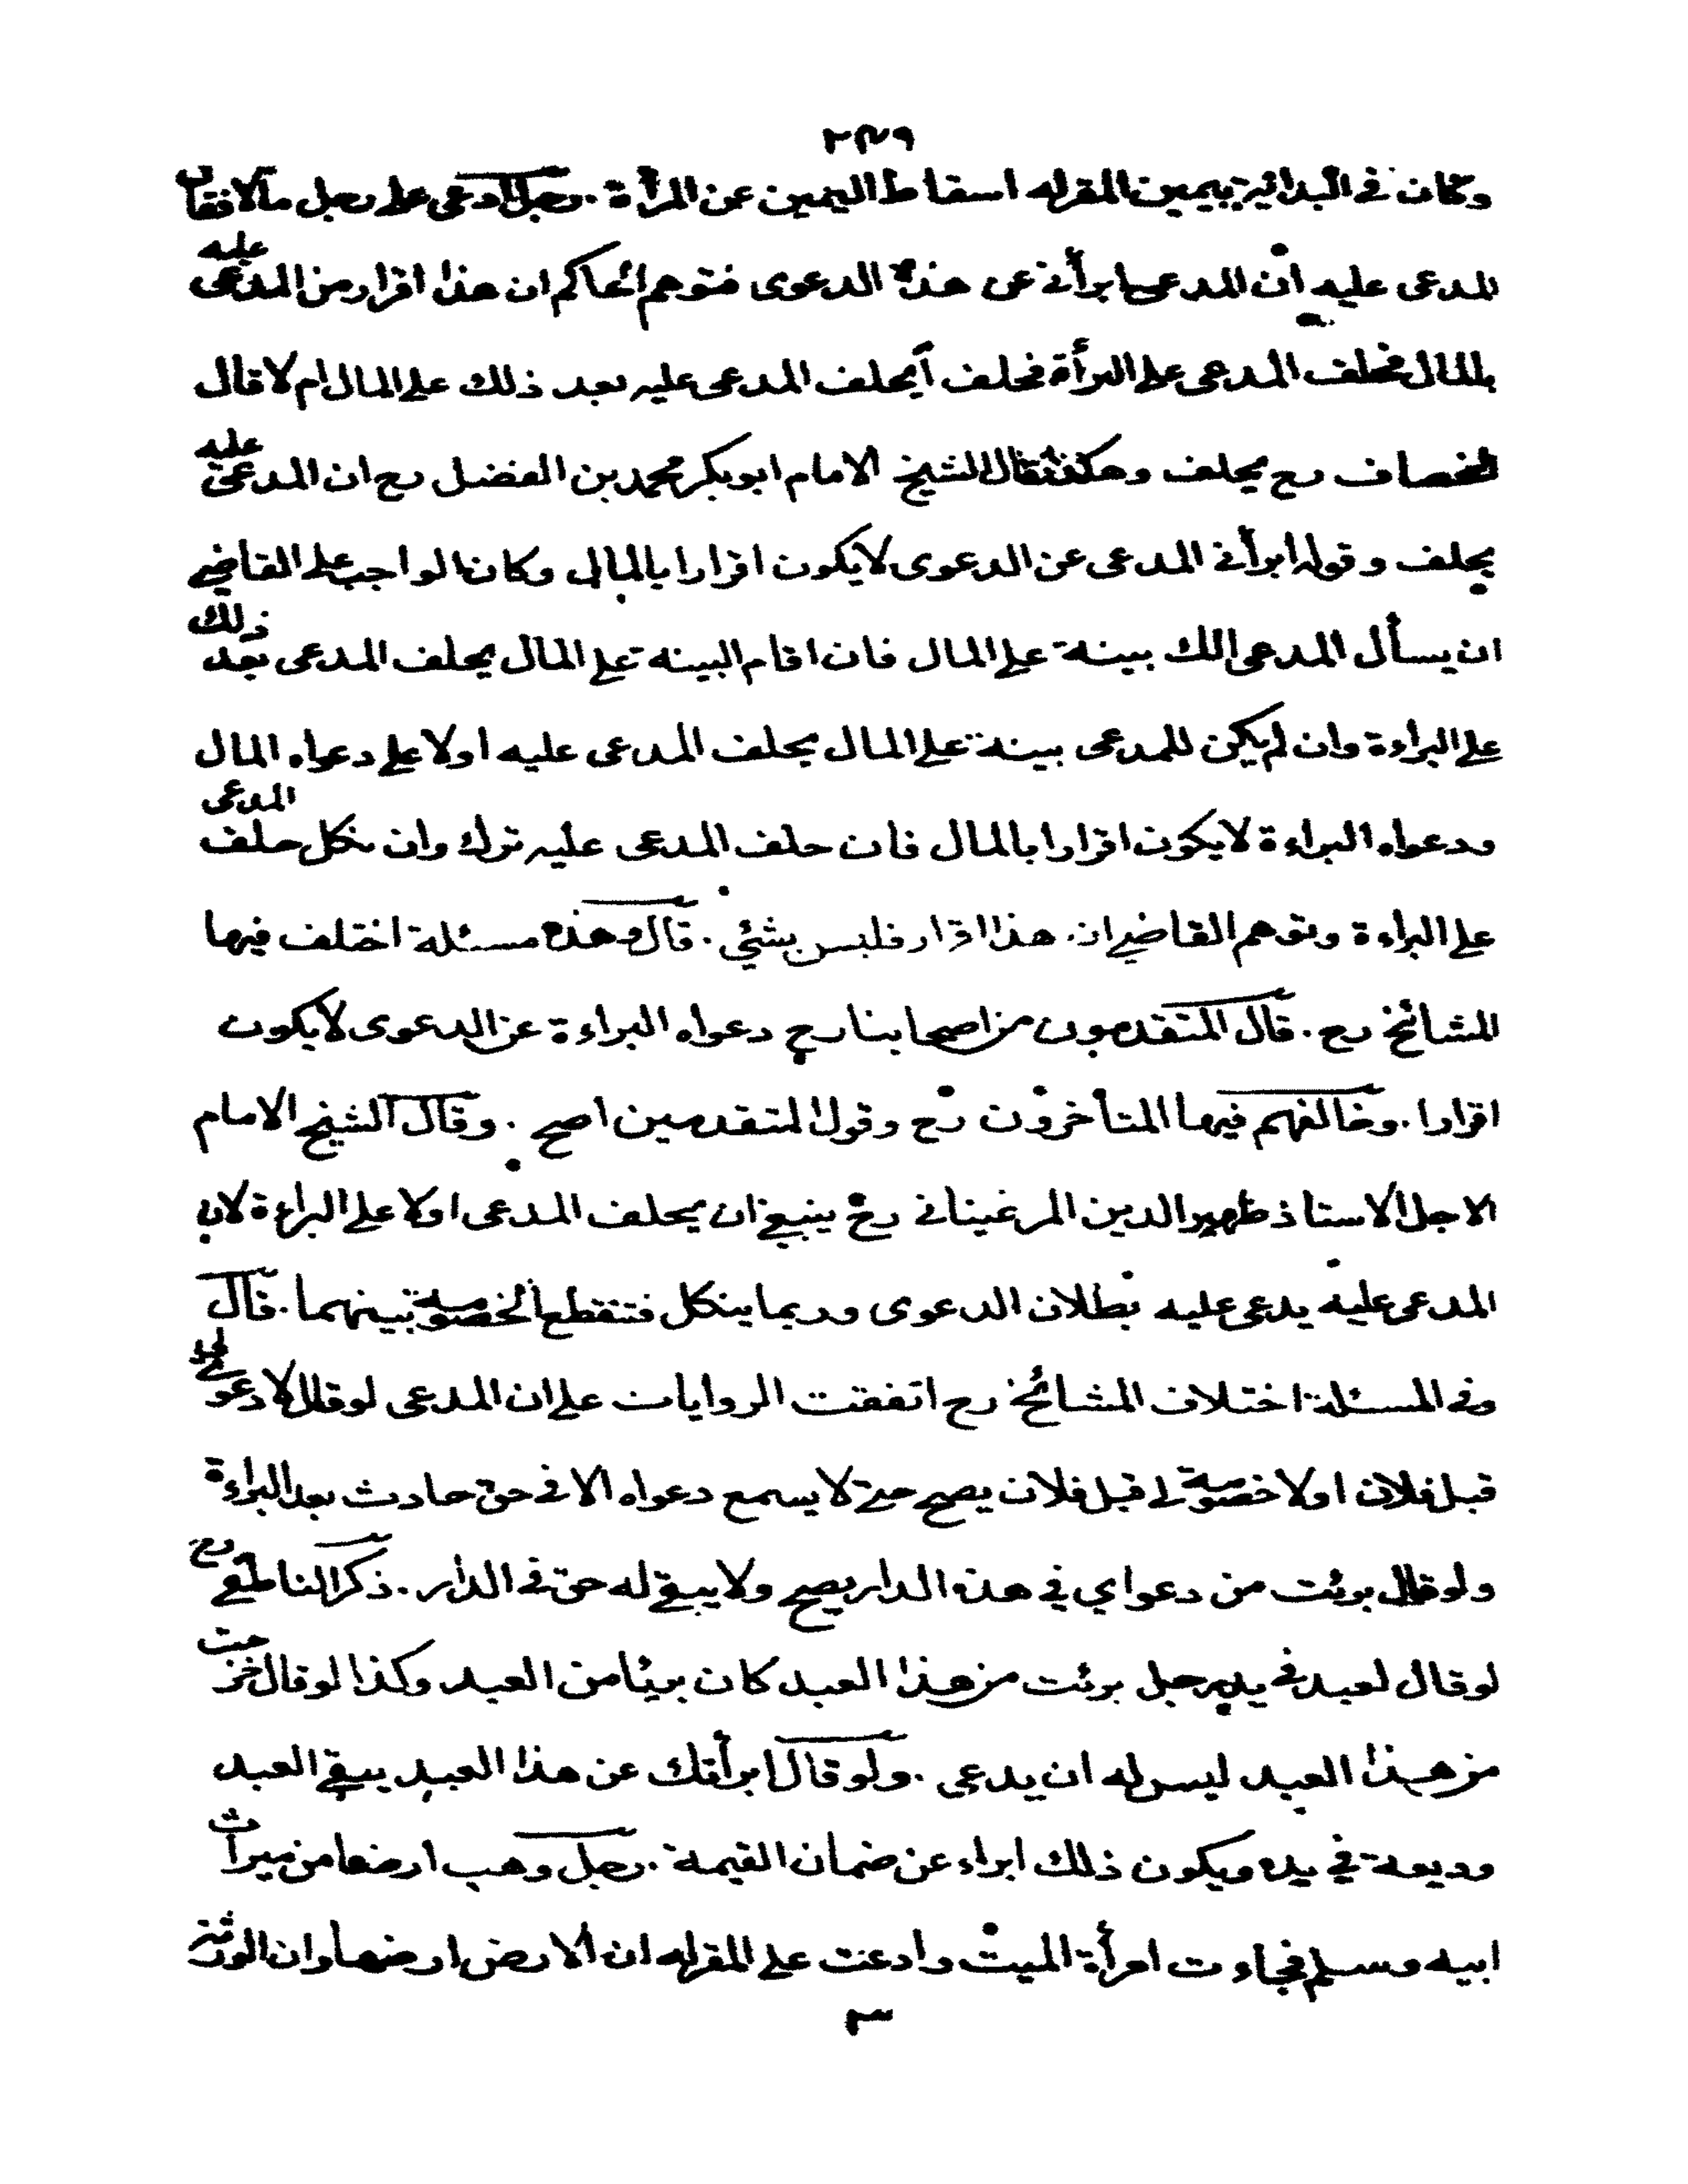 ٢٤٩
وكان في البداية بيمين المقرله اسقاط اليمين عن المرأة . رجل ادعى على رجل مالا فقال
المدعى عليه ان المدعى ابرأني عن هذه الدعوى فتوهم الحاكم ان هذا اقرار من المدعى عليه
بالمال فحلف المدعى على البرأة فحلف أيحلف المدعى عليه بعد ذلك على المال ام لا قال
الخصاف رح يحلف وهكذا قال الشيخ الامام ابوبكر محمد بن الفضل رح ان المدعى عليه
يحلف وقوله ابرأني المدعى عن الدعوى لايكون اقرارا بالمال وكان الواجب على القاضي
ان يسأل المدعى الك بينة على المال فان اقام البينة على المال يحلف المدعى بعد ذلك
على البراءة وان لم يكن للمدعى بينة على المال يحلف المدعى عليه اولا على دعواه المال
ودعواه البراءة لايكون اقرارا بالمال فان حلف المدعى عليه ترك وان نكل حلف المدعى
على البراءة وتوهم القاضي ان هذا اقرار فليس بشئي . قال وهذه مسئلة اختلف فيها
المشائخ رح . قال المتقدمون من اصحابنا رح دعواه البراءة عن الدعوى لايكون
اقرارا . وخالفهم فيها المتأخرون رح وقول المتقدمين اصح . وقال الشيخ الامام
الاجل الاستاذ ظهير الدين المرغيناني رح ينبغي ان يحلف المدعى اولا على البراءة لان
المدعى عليه يدعى عليه بطلان الدعوى وربما ينكل فتنقطع الخصومة بينهما . قال
وفي المسئلة اختلاف المشائخ رح اتفقت الروايات على ان المدعى لو قال لا دعوى لي
قبل فلان او لا خصومة لي قبل فلان يصح حتى لا يسمع دعواه الا في حق حادث بعد البراءة
ولو قال برئت من دعواي في هذه الدار يصح ولا يبقى له حق في الدار . ذكر الناطفي رح
لو قال لعبد في يد رجل برئت من هذا العبد كان بريئا من العبد وكذا لو قال خرجت
من هذا العبد ليس له ان يدعى . ولو قال ابرأتك عن هذا العبد يبقى العبد
وديعة في يده ويكون ذلك ابراء عن ضمان القيمة . رجل وهب ارضا من ميراث
ابيه وسلم فجاءت امرأة الميت وادعت على المقرله ان الارض ارضها وان الورثة